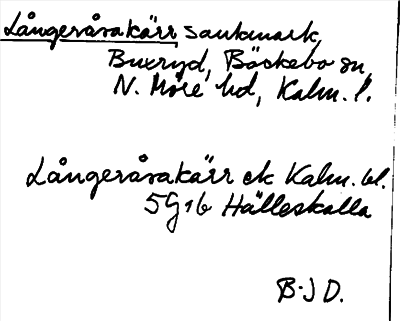 Långeråsakärr sankmark,
Buxryd, Bäckebo sn
N. Möre hd, Kalm. l.
Långeråsakärr ek Kalm. bl.
5G 1b Hälleskalla
B-J D.